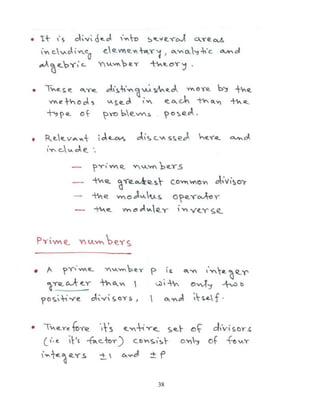 • It is divided into several areas
including elementary, analytic and
algebric number theory.
• These are distinguished more by the
methods used in each than the
type of problems posed.
• Relevant ideas discussed here and
include :
— prime numbers
— the greatest common divisor
— the modulus operator
— the moduler inverse
Prime numbers
• A prime number p is an integer
greater than 1 with only two
positive divisors, 1 and itself.
• Therefore it's entire set of divisors
(i.e it's factor) consist only of four
integers ±1 and ±p
38